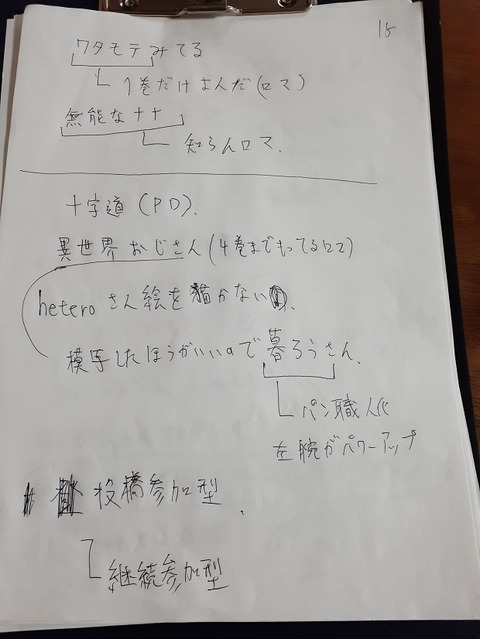 15
ワタモテみてる
1巻だけよんだ(ロマ)
無能なナナ
知らんロマ.
十字道(PD).
異世界おじさん(4巻までもってるロマ)
heteroさん絵を描かない
模写したほうがいいので暮ろうさん.
パン職人化
左腕がパワーアップ
投稿参加型.
継続参加型